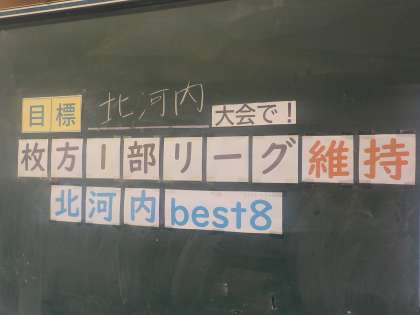 目標 北河内 大会で!
枚方1部リーグ維持
北河内best8